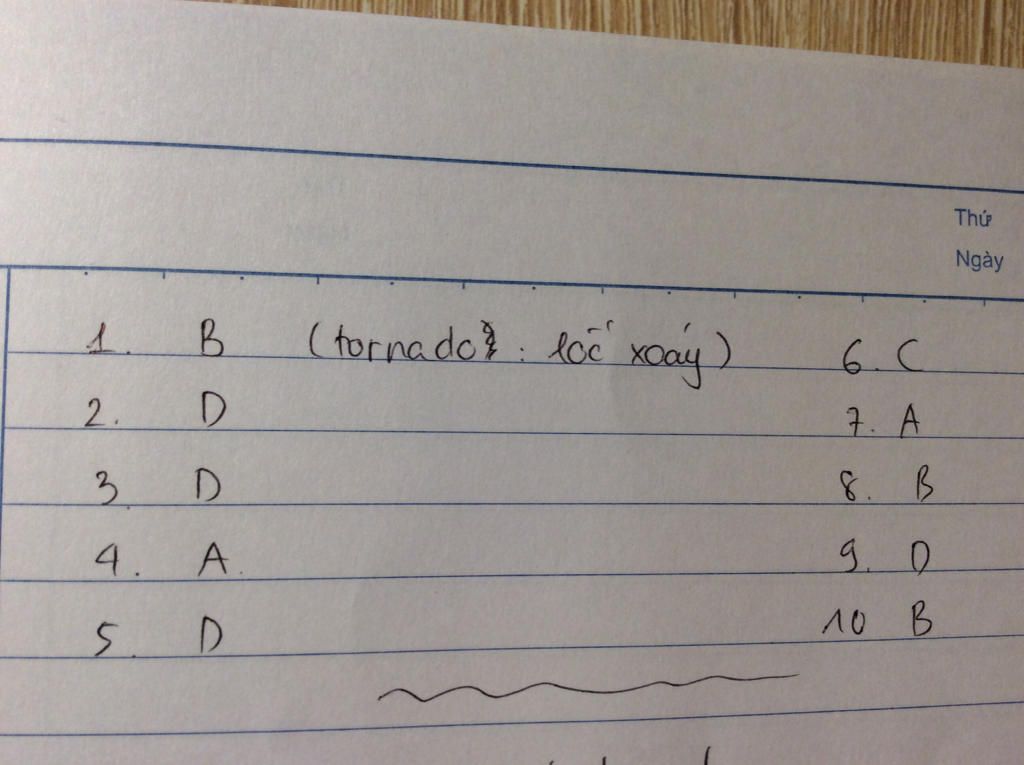 Thứ
Ngày
1. B (tornado : lốc xoáy) 6. C
2. D 7. A
3. D 8. B
4. A. 9. D
5. D 10 B